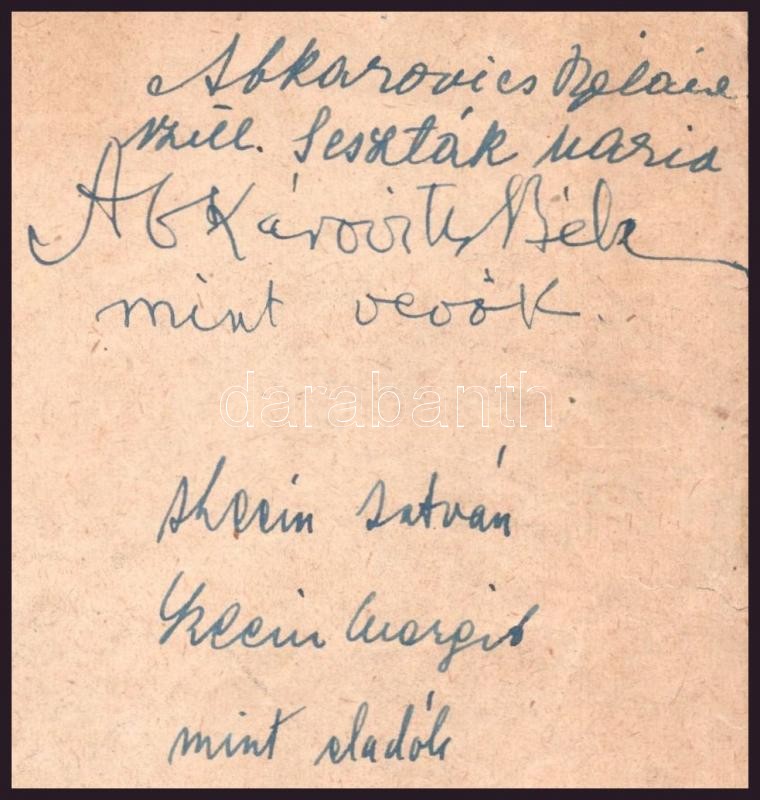 Abkarovics Béláné
szül. Sesztak Maria
Abkárovits Béla
mint vevők.
darabanth
István
Margit
mint eladók